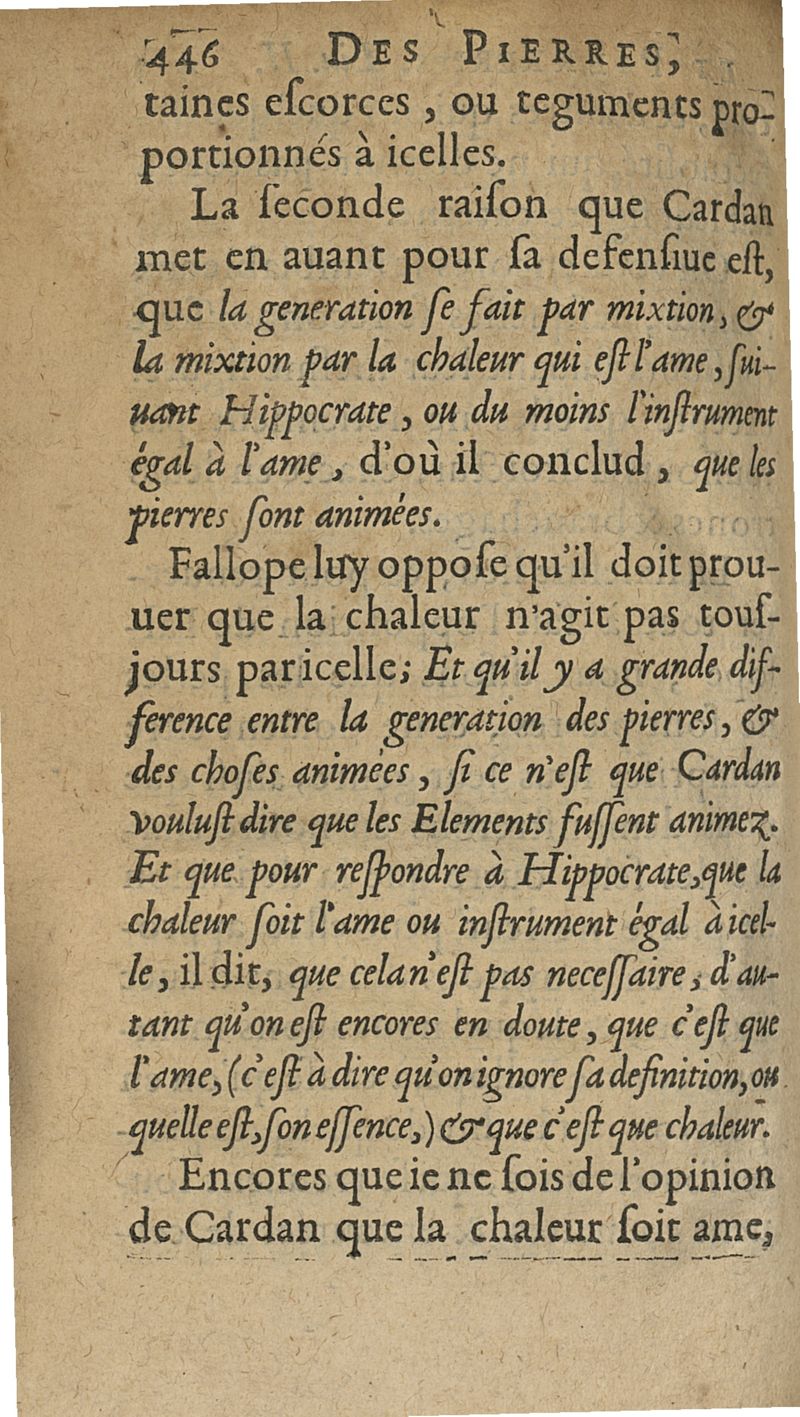 446 DES PIERRES,
taines eſcorces , ou teguments pro-
portionnés à icelles.
La ſeconde raiſon que Cardan
met en auant pour ſa defenſiue eſt,
que la generation ſe fait par mixtion, &
la mixtion par la chaleur qui eſt l'ame, ſui-
uant Hippocrate, ou du moins l'inſtrument
égal à l'ame, d'où il conclud, que les
pierres ſont animées.
Fallope luy oppoſe qu'il doit prou-
uer que la chaleur n'agit pas touſ-
jours par icelle; Et qu'il y a grande dif-
ference entre la generation des pierres, &
des choſes animées, ſi ce n'eſt que Cardan
vouluſt dire que les Elements fuſſent animez.
Et que pour reſpondre à Hippocrate, que la
chaleur ſoit l'ame ou inſtrument égal à icel-
le, il dit, que cela n'eſt pas neceſſaire, d'au-
tant qu'on eſt encores en doute, que c'eſt que
l'ame, (c'eſt à dire qu'on ignore ſa definition, ou
quelle eſt, ſon eſſence,) & que c'eſt que chaleur.
Encores que ie ne ſois de l'opinion
de Cardan que la chaleur ſoit ame,